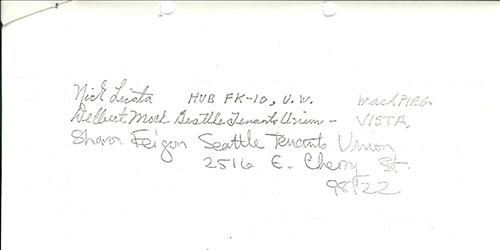 Nick Licata HUB FK-10, U.W. WashPIRG
Delbert Mock Seattle Tenants Union - VISTA
Sharon Feigon Seattle Tenants Union
2516 E. Cherry St.
98122